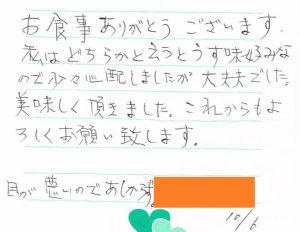 お食事ありがとうございます.
私はどちらかと云うとうす味好みな
ので少々心配しましたが大丈夫でした。
美味しく頂きました。これからもよ
ろしくお願い致します。
目が悪いのであしからず。
10/6